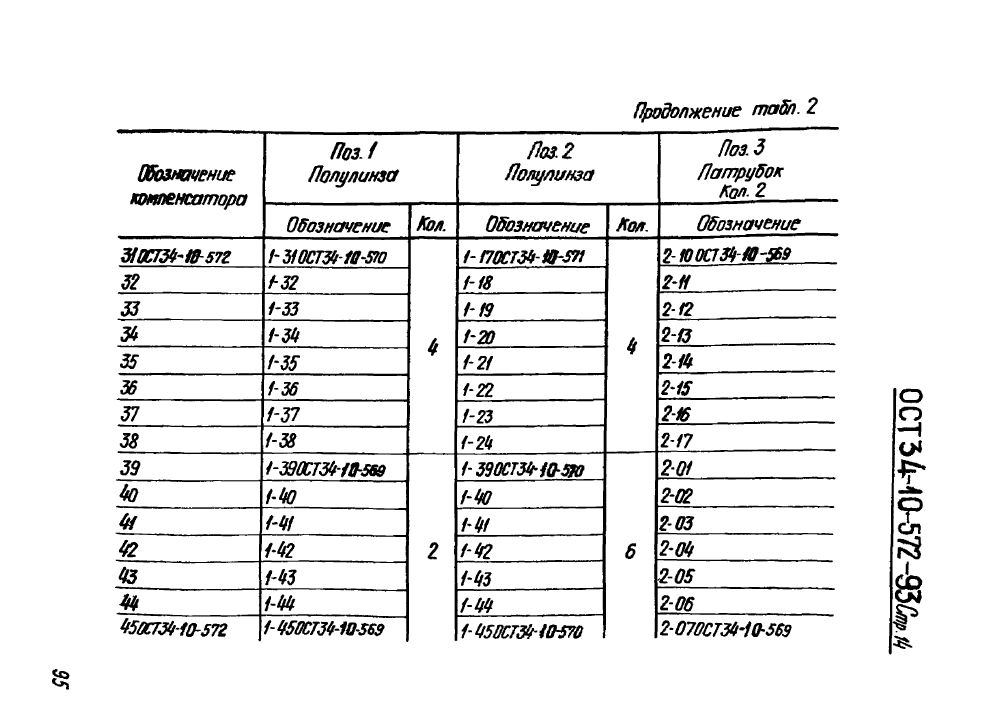 Продолжение табл. 2
Обозначение компенсатора | Поз. 1 Полулинза | Поз. 2 Полулинза | Поз. 3 Патрубок Кол. 2
Обозначение | Кол. | Обозначение | Кол. | Обозначение
31 ОСТ34-10-572 | 1-31 ОСТ34-10-570 | 4 | 1-17 ОСТ34-10-571 | 4 | 2-10 ОСТ34-10-569
32 | 1-32 | 1-18 | 2-11
33 | 1-33 | 1-19 | 2-12
34 | 1-34 | 1-20 | 2-13
35 | 1-35 | 1-21 | 2-14
36 | 1-36 | 1-22 | 2-15
37 | 1-37 | 1-23 | 2-16
38 | 1-38 | 1-24 | 2-17
39 | 1-39 ОСТ34-10-569 | 2 | 1-39 ОСТ34-10-570 | 6 | 2-01
40 | 1-40 | 1-40 | 2-02
41 | 1-41 | 1-41 | 2-03
42 | 1-42 | 1-42 | 2-04
43 | 1-43 | 1-43 | 2-05
44 | 1-44 | 1-44 | 2-06
45 ОСТ34-10-572 | 1-45 ОСТ34-10-569 | 1-45 ОСТ34-10-570 | 2-07 ОСТ34-10-569
ОСТ 34-10-572-93 Стр. 14
95